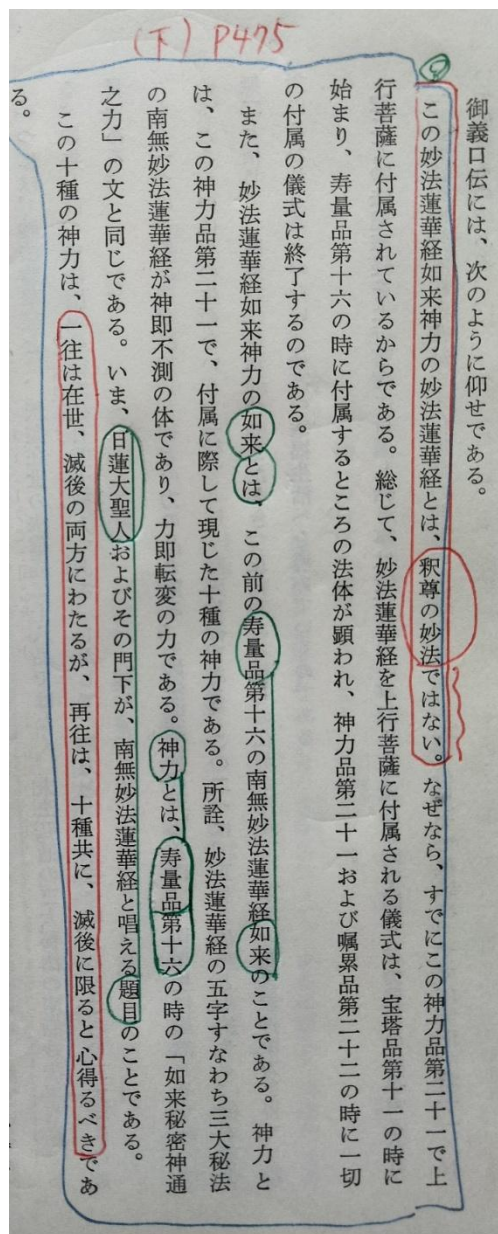 (下) P475
御義口伝には、次のように仰せである。
この妙法蓮華経如来神力の妙法蓮華経とは、釈尊の妙法ではない。なぜなら、すでにこの神力品第二十一で上
行菩薩に付属されているからである。総じて、妙法蓮華経を上行菩薩に付属される儀式は、宝塔品第十一の時に
始まり、寿量品第十六の時に付属するところの法体が顕われ、神力品第二十一および嘱累品第二十二の時に一切
の付属の儀式は終了するのである。
また、妙法蓮華経如来神力の如来とは、この前の寿量品第十六の南無妙法蓮華経如来のことである。神力と
は、この神力品第二十一で、付属に際して現じた十種の神力である。所詮、妙法蓮華経の五字すなわち三大秘法
の南無妙法蓮華経が神即不測の体であり、力即転変の力である。神力とは、寿量品第十六の時の「如来秘密神通
之力」の文と同じである。いま、日蓮大聖人およびその門下が、南無妙法蓮華経と唱える題目のことである。
この十種の神力は、一往は在世、滅後の両方にわたるが、再往は、十種共に、滅後に限ると心得るべきであ
る。